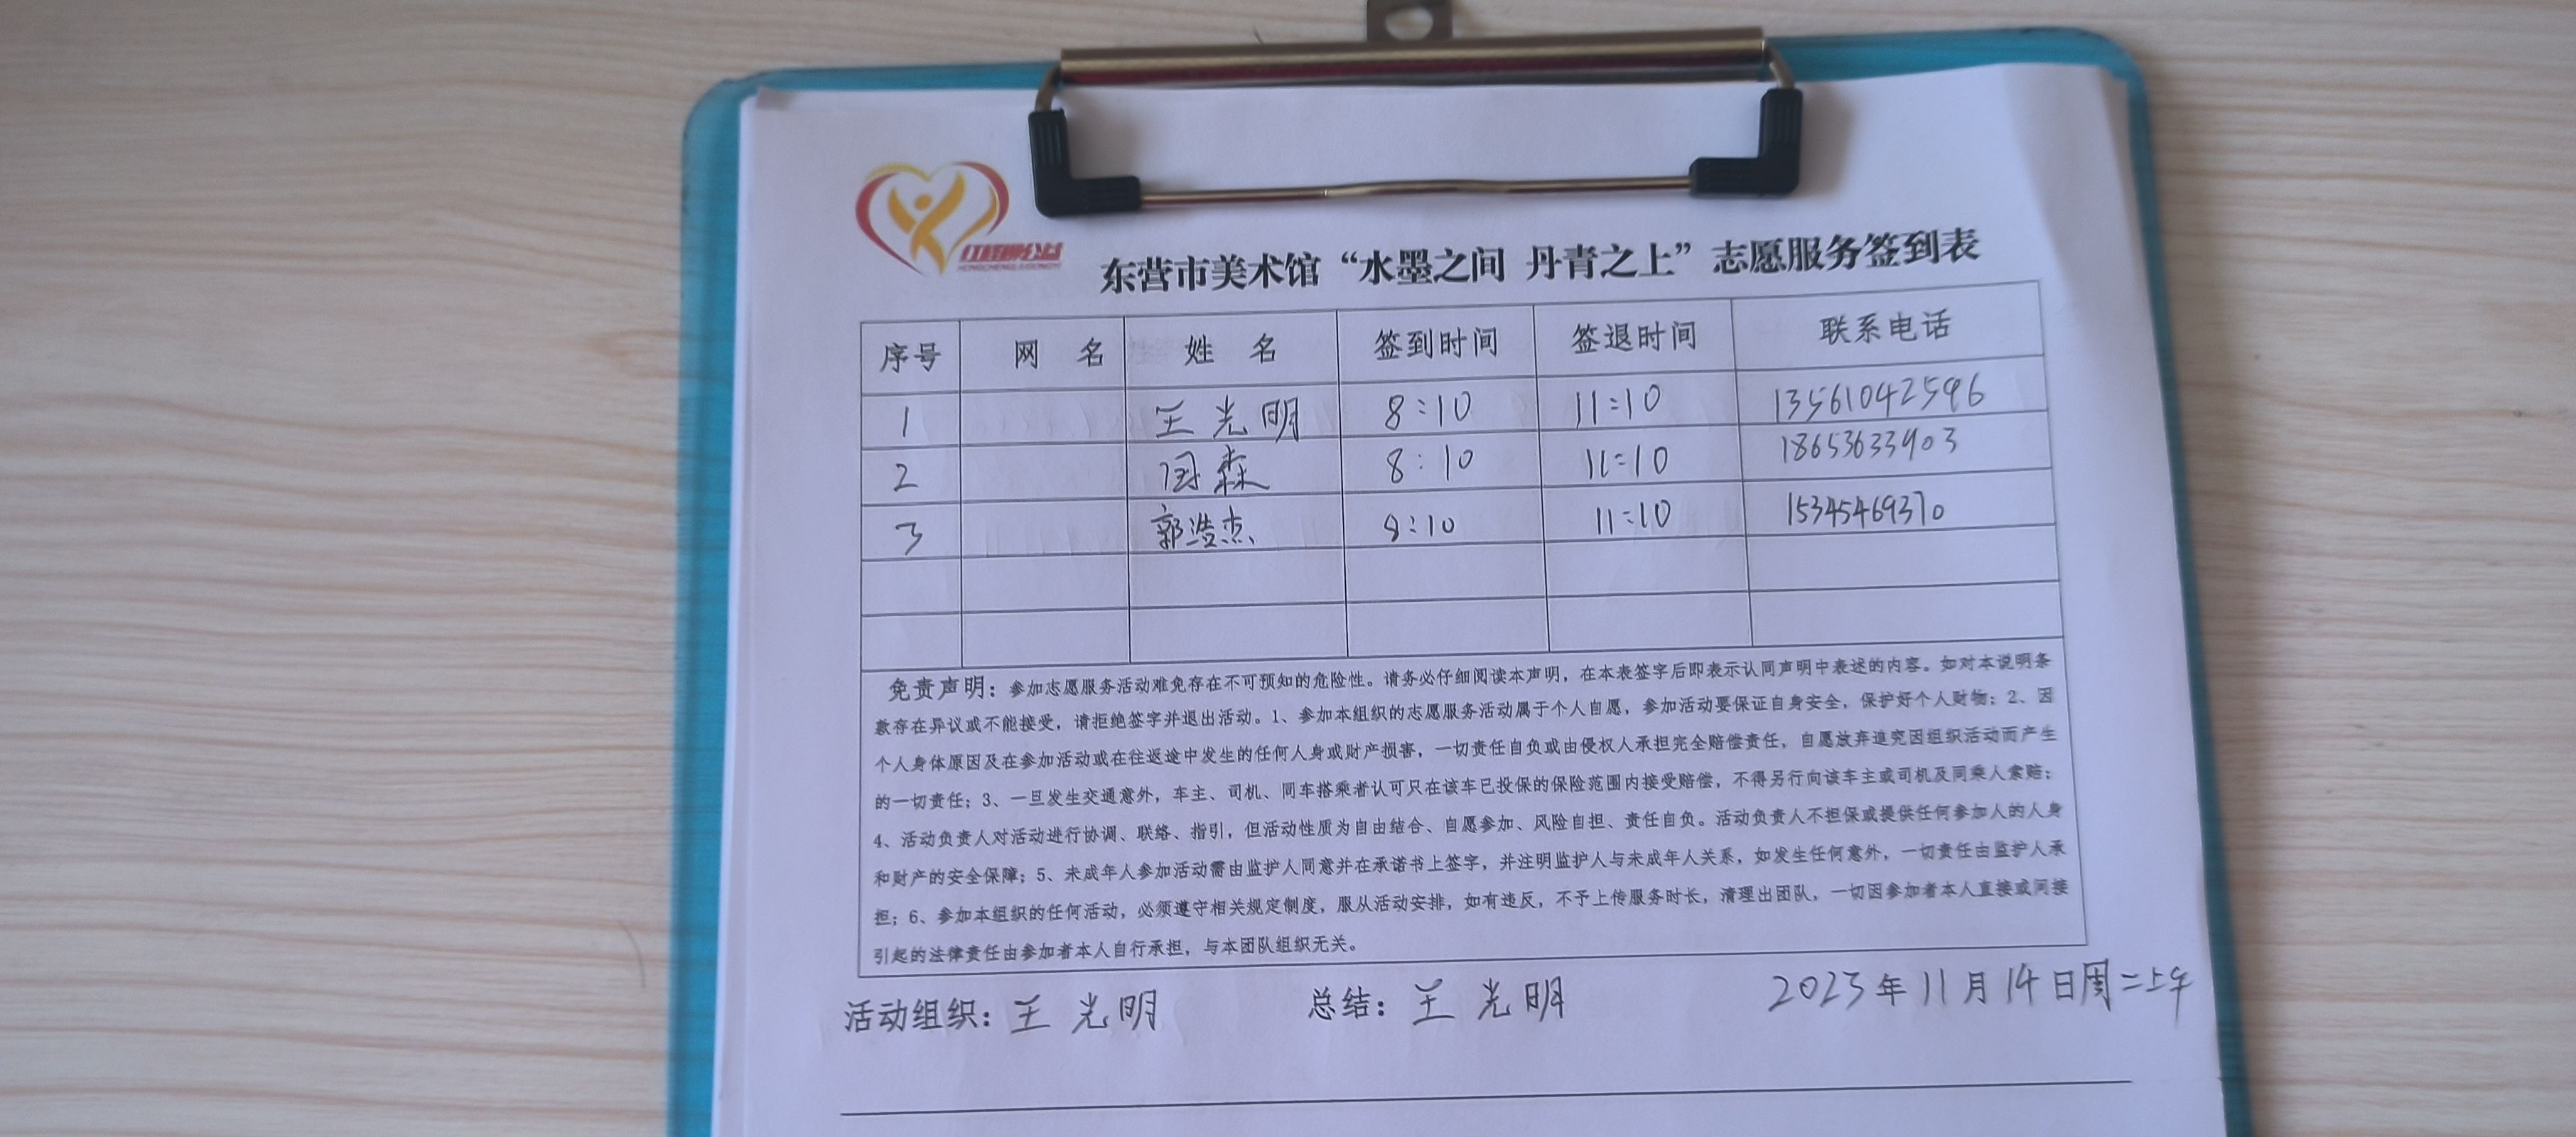 红柽柳公益
HONGCHENGLIUGONGYI
东营市美术馆“水墨之间 丹青之上”志愿服务签到表
序号 网 名 姓 名 签到时间 签退时间 联系电话
1 王光明 8:10 11:10 13561042596
2 国森 8:10 11:10 18653633903
3 郭浩杰 8:10 11:10 15345469370
免责声明：参加志愿服务活动难免存在不可预知的危险性。请务必仔细阅读本声明，在本表签字后即表示认同声明中表述的内容。如对本说明条
款存在异议或不能接受，请拒绝签字并退出活动。1、参加本组织的志愿服务活动属于个人自愿，参加活动要保证自身安全，保护好个人财物；2、因
个人身体原因及在参加活动或在往返途中发生的任何人身或财产损害，一切责任自负或由侵权人承担完全赔偿责任，自愿放弃追究因组织活动而产生
的一切责任；3、一旦发生交通意外，车主、司机、同车搭乘者认可只在该车已投保的保险范围内接受赔偿，不得另行向该车主或司机及同乘人索赔；
4、活动负责人对活动进行协调、联络、指引，但活动性质为自由结合、自愿参加、风险自担、责任自负。活动负责人不担保或提供任何参加人的人身
和财产的安全保障；5、未成年人参加活动需由监护人同意并在承诺书上签字，并注明监护人与未成年人关系，如发生任何意外，一切责任由监护人承
担；6、参加本组织的任何活动，必须遵守相关规定制度，服从活动安排，如有违反，不予上传服务时长，清理出团队，一切因参加者本人直接或间接
引起的法律责任由参加者本人自行承担，与本团队组织无关。
活动组织：王光明 总结：王光明 2023年11月14日周二上午